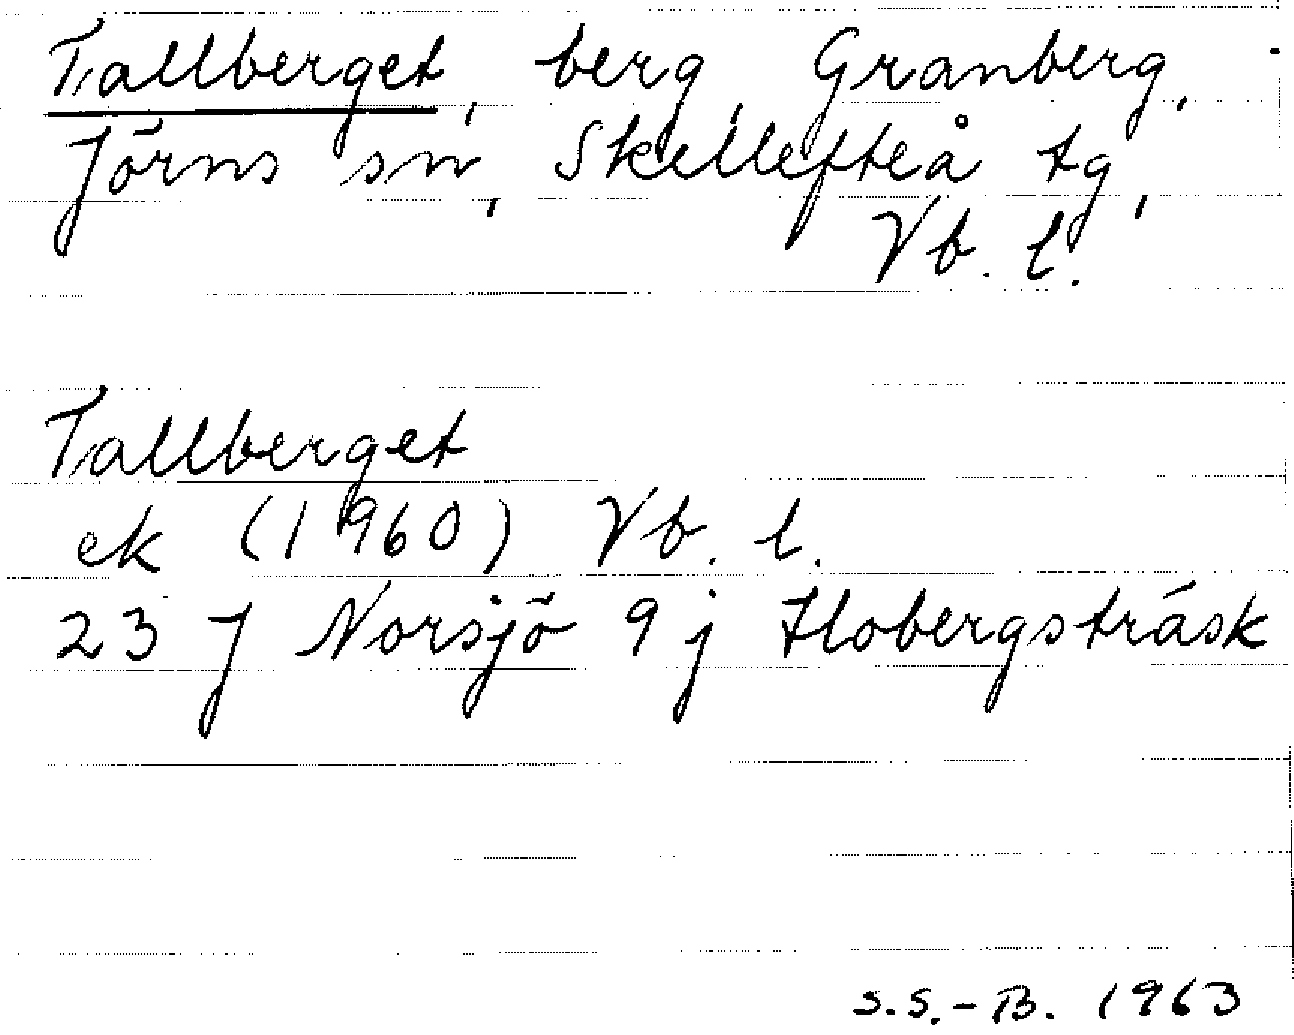 Tallberget, berg, Granberg,
Jörns sn, Skellefteå tg,
Vb. l.
Tallberget
ek (1960) Vb. l.
23 J Norsjö 9 j Flobergsträsk
S.S.-B. 1963